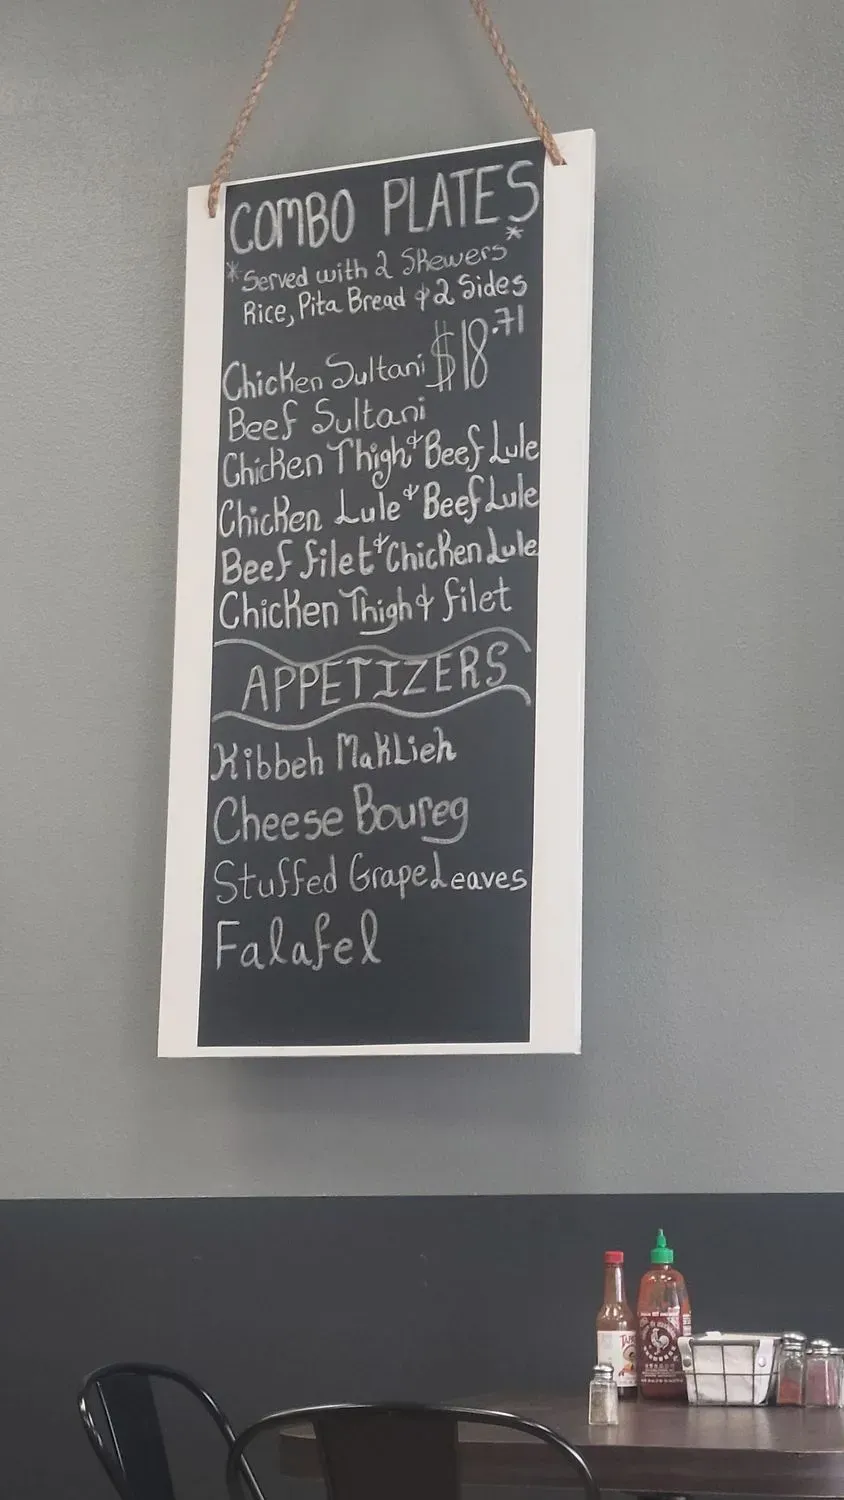 COMBO PLATES
*Served with 2 Skewers*
Rice, Pita Bread & 2 Sides
Chicken Sultani $18.71
Beef Sultani
Chicken Thigh & Beef Lule
Chicken Lule & Beef Lule
Beef filet & Chicken Lule
Chicken Thigh & filet
APPETIZERS
Kibbeh Maklieh
Cheese Boureg
Stuffed Grape Leaves
Falafel